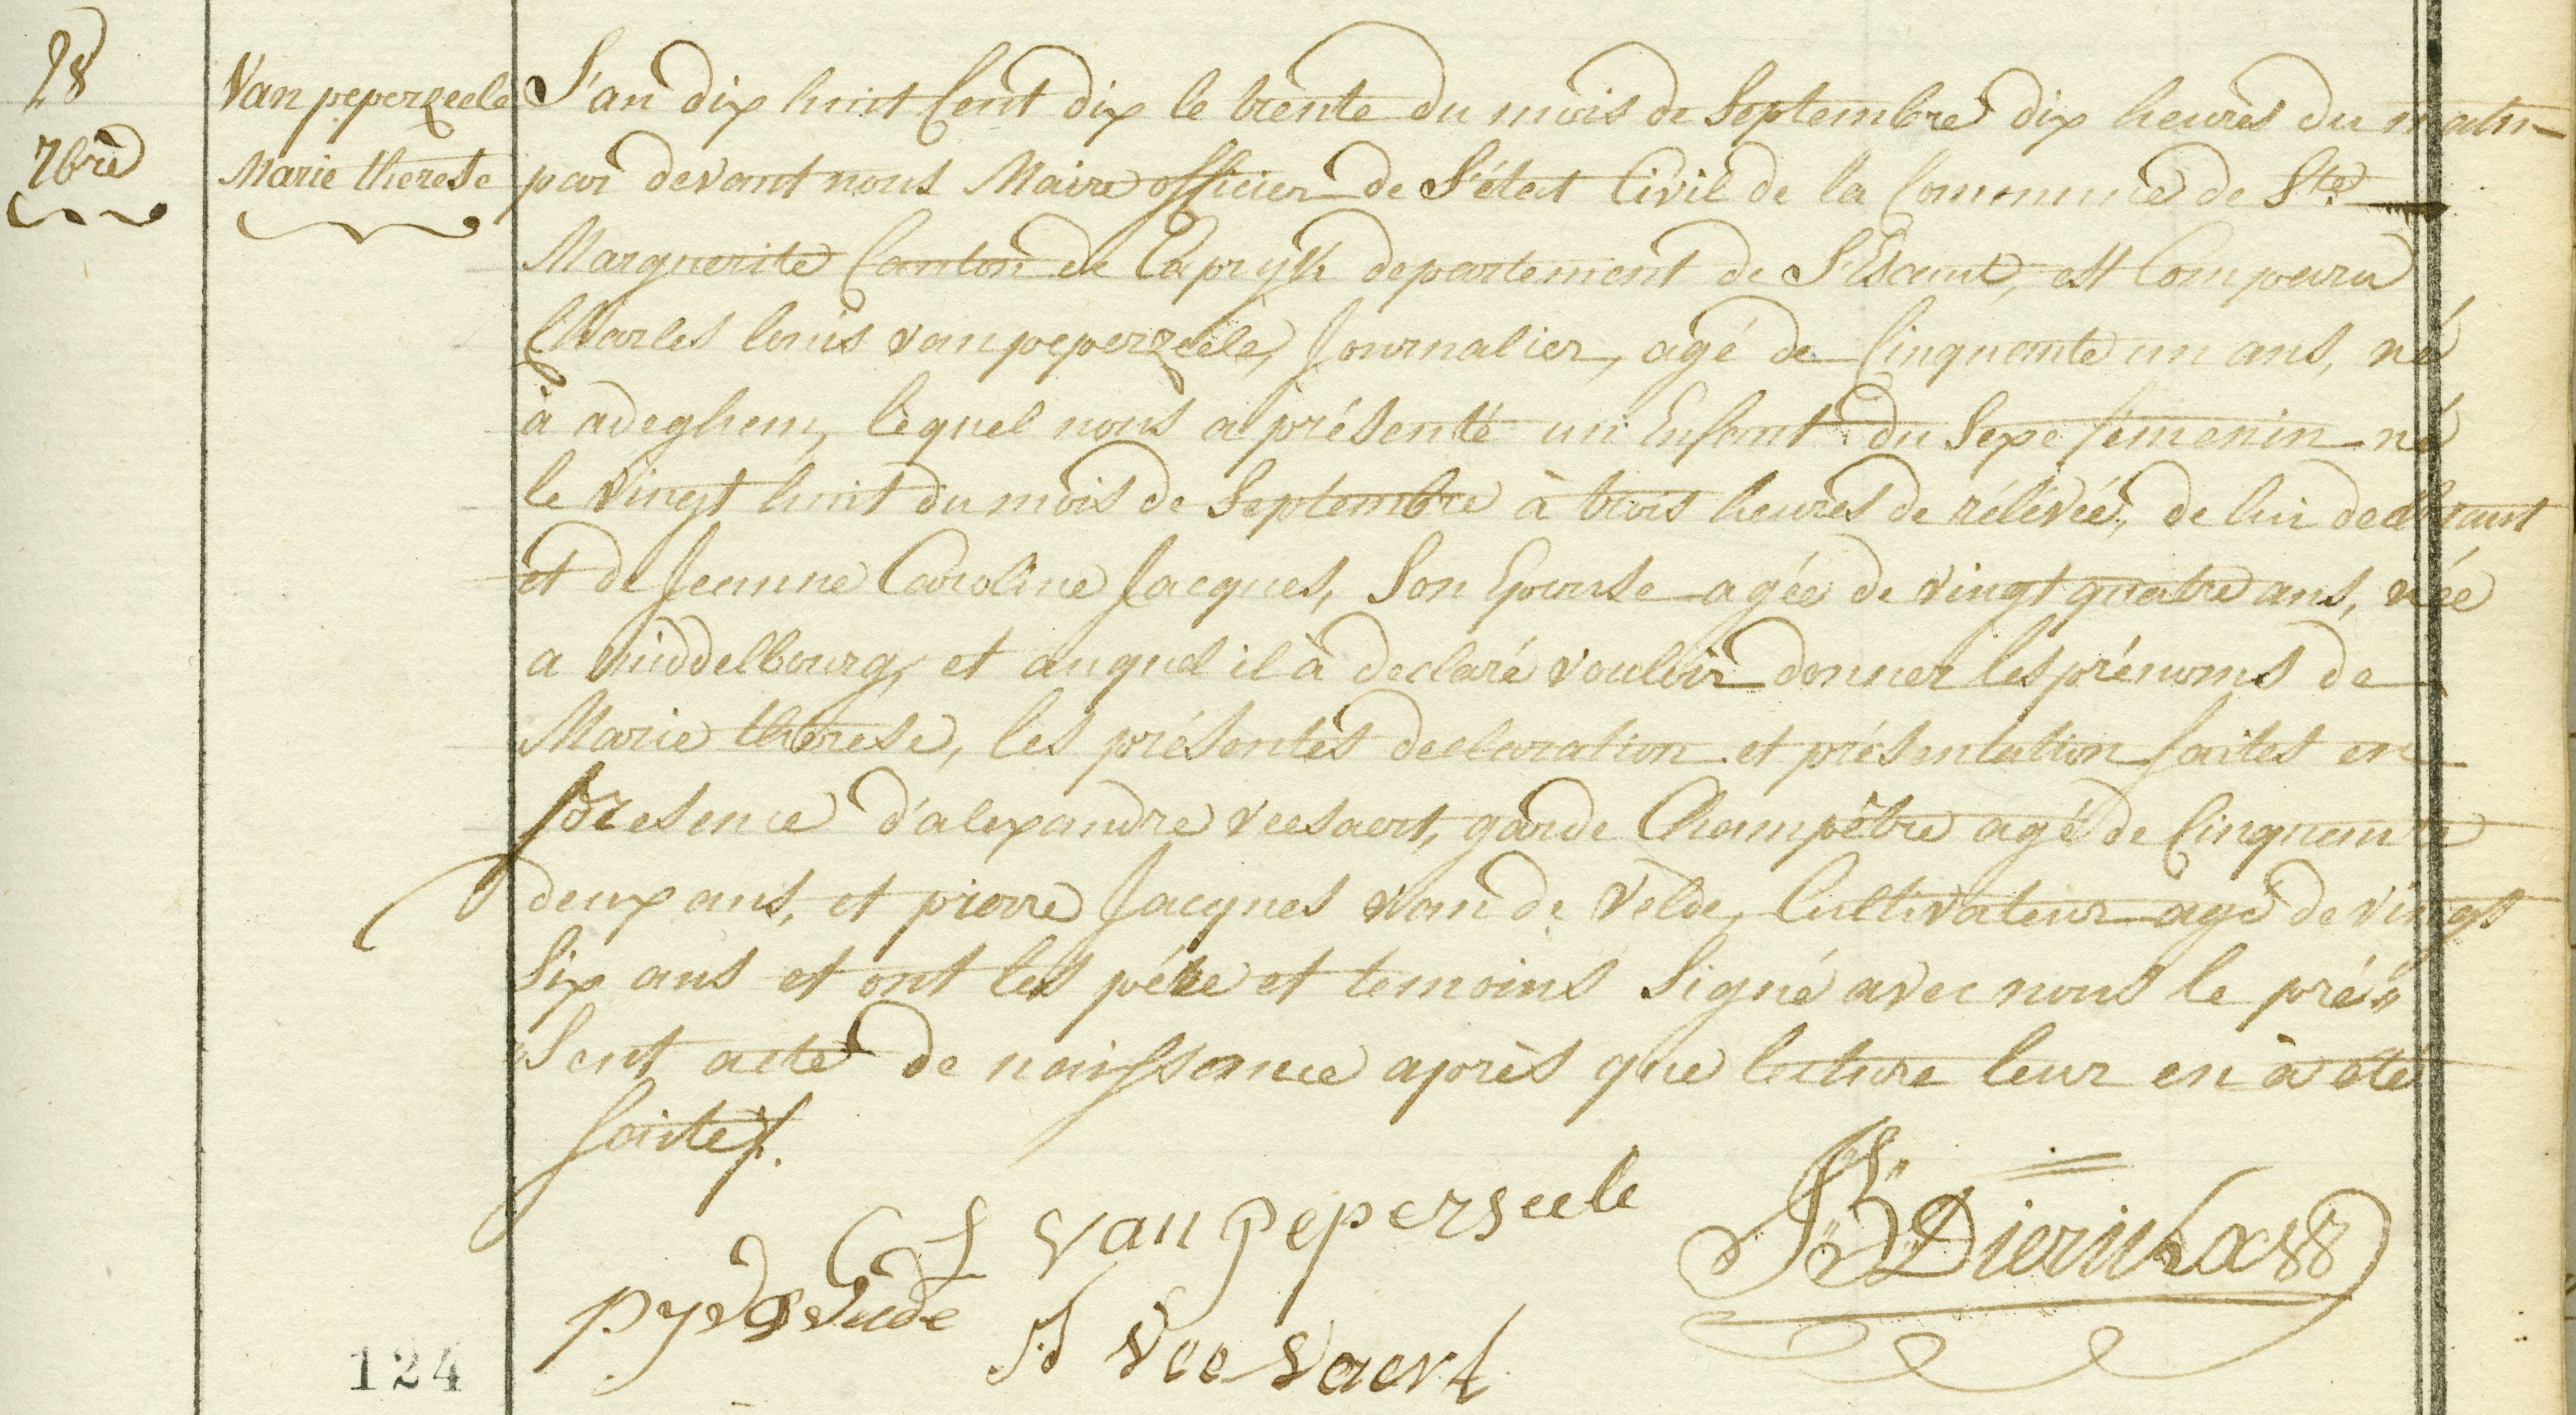 28
7bre
Van peperzeele
Marie therese
L'an dix huit Cent dix le trente du mois de Septembre dix heures du matin
par devant nous Maire officier de l'état Civil de la Commune de Ste
Marguerite Canton de Capryk departement de l'Escaut, est Comparu
Charles louis van peperzeele, Journalier, agé de Cinquante un ans, né
à adeghem, lequel nous a présenté un Enfant du Sexe fémenin né
le vingt huit du mois de Septembre à trois heures de rélévée, de lui declarant
et de Jeanne Caroline Jacques, Son Epouse agée de vingt quatre ans, née
a middelbourg, et auquel il à declaré vouloir donner les prénoms de
Marie therese, les présentes declaration et présentation faites en
presence d'alexandre veesaert, garde Champêtre agé de Cinquante
deux ans, et pierre Jacques van de Velde, Cultivateur agé de vingt
Six ans et ont les pére et temoins Signé avec nous le pré"
Sent acte de naissance après que lecture leur en à été
faite.
C L van Peperseele
A Veesaert
124